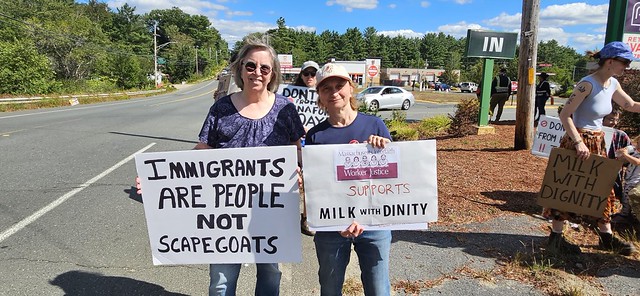 IMMIGRANTS
ARE PEOPLE
NOT
SCAPEGOATS
Worker Justice
SUPPORTS
MILK WITH DINITY
DON'T
FROM
DAY
IN
DON'T
FROM
MILK
WITH
DIGNITY